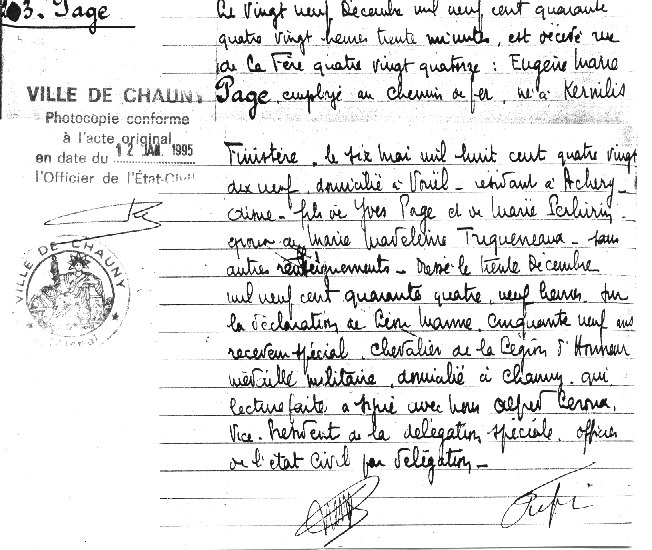 203. Page
Le vingt neuf Décembre mil neuf cent quarante
quatre vingt heures trente minutes, est décédé rue
de La Fère quatre vingt quatorze : Eugène Marie
Page, employé au chemin de fer, né à Kernilis
VILLE DE CHAUNY
Photocopie conforme
à l'acte original
en date du 12 JAN. 1995
l'Officier de l'État-Civil
Finistère, le six mai mil huit cent quatre vingt
dix neuf, domicilié à Vouël - résidant à Achery -
Aisne - fils de Yves Page et de Marie
époux de Marie Madeleine Triqueneaux - sans
autres renseignements - Dressé le trente Décembre
mil neuf cent quarante quatre, neuf heures, sur
la déclaration de Léon Mamme, cinquante neuf ans
receveur spécial, chevalier de la Légion d'Honneur
médaille militaire, domicilié à Chauny, qui
lecture faite a signé avec nous Alfred Leroux,
Vice-Président de la délégation spéciale, officier
de l'état civil par délégation -
VILLE DE CHAUNY